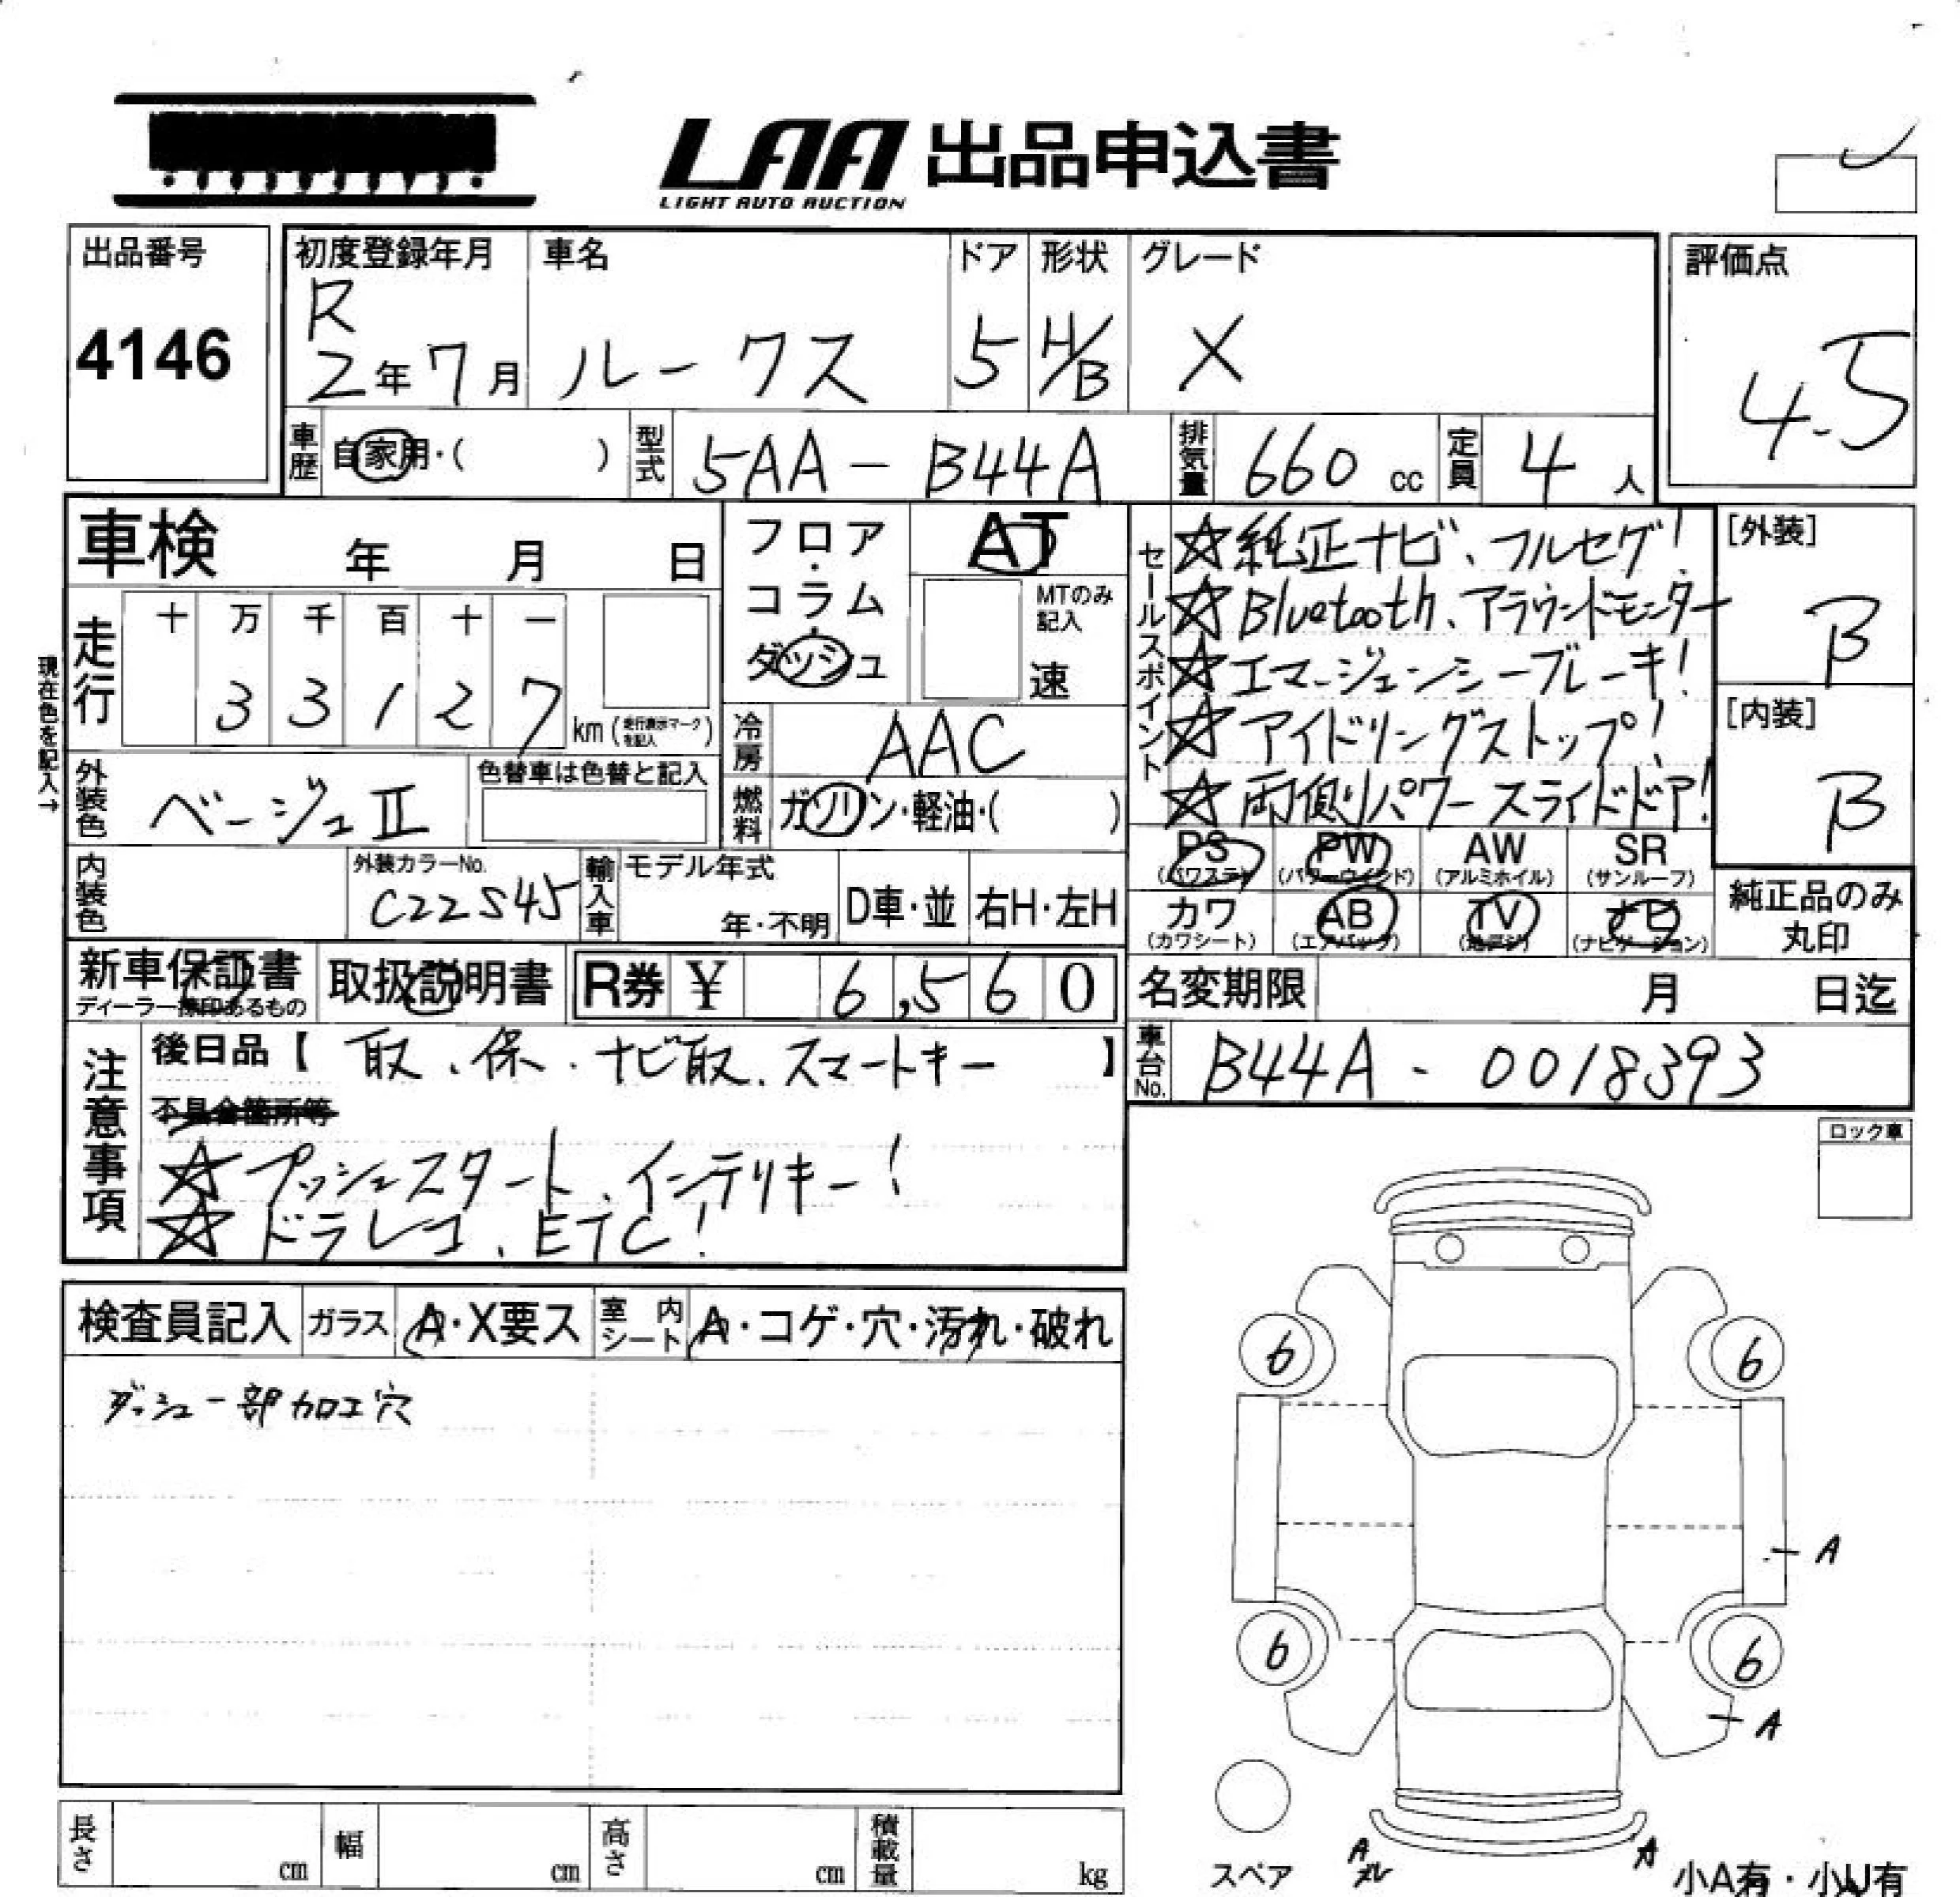 LAA 出品申込書
LIGHT AUTO AUCTION
出品番号
4146
初度登録年月
R
2年7月
車名
ルークス
ドア
5
形状
H/B
グレード
X
評価点
4.5
車歴
自家用・( )
型式
5AA-B44A
排気量
660 cc
定員
4人
車検 年 月 日
フロア・
コラム・
ダッシュ
AT
MTのみ
記入
速
走行
十 万 千 百 十 一
3 3 1 2 7
km(走行表示マークを記入)
現在色を記入→
冷房
AAC
セールスポイント
☆純正ナビ、フルセグ!
☆Bluetooth、アラウンドモニター
☆エマージェンシーブレーキ!
☆アイドリングストップ!
☆両側パワースライドドア!
[外装]
B
[内装]
B
外装色
ベージュII
色替車は色替と記入
燃料
ガソリン・軽油・( )
PS
(パワステ)
PW
(パワーウインド)
AW
(アルミホイル)
SR
(サンルーフ)
カワ
(カワシート)
AB
(エアバック)
TV
(地デジ)
ナビ
(ナビゲーション)
純正品のみ
丸印
内装色
外装カラーNo.
C22S45
輸入車
モデル年式
年・不明
D車・並
右H・左H
新車保証書
ディーラー捺印あるもの
取扱説明書
R券 ¥ 6,560
名変期限 月 日迄
注意事項
後日品【 取、保、ナビ取、スマートキー 】
不具合箇所等
☆プッシュスタート、インテリキー!
☆ドラレコ、ETC!
車台No.
B44A-0018393
ロック車
検査員記入
ガラス
A・X要ス
室内シート
A・コゲ・穴・汚れ・破れ
ダッシュ一部加工穴
6
6
A
6
6
A
スペア
A
A
小A有・小U有
長さ cm
幅 cm
高さ cm
積載量 kg